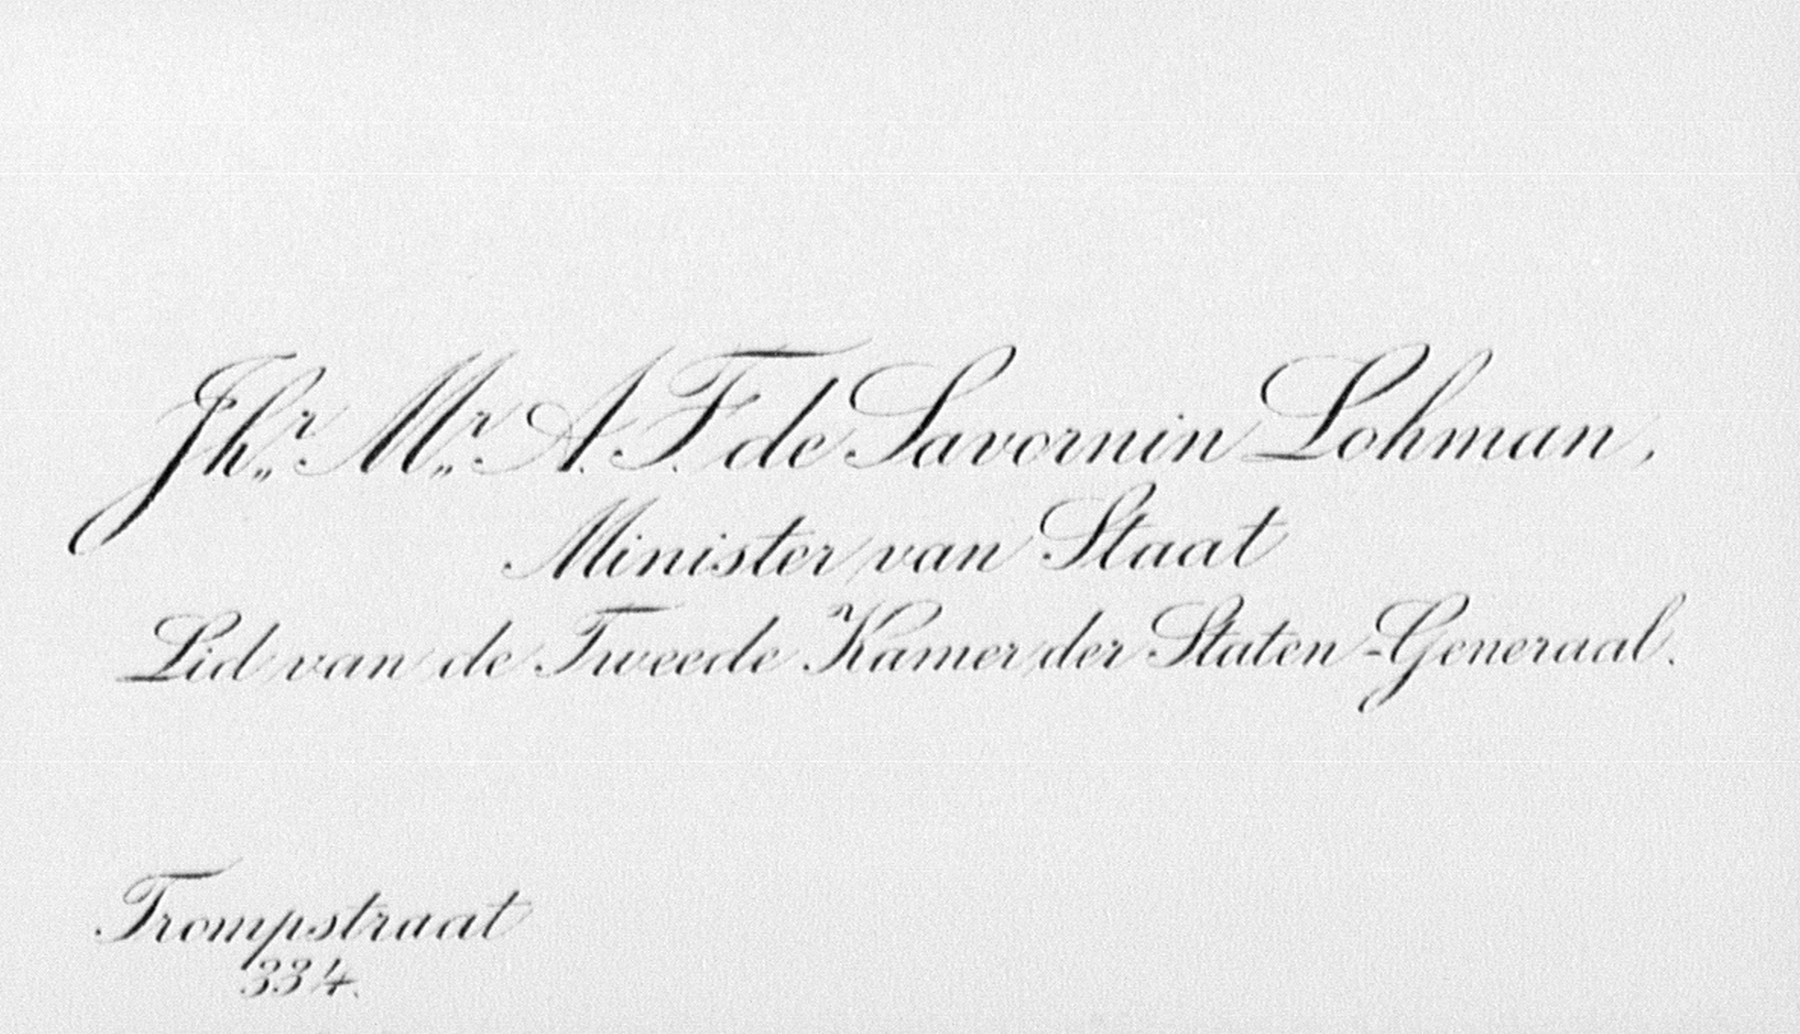 Jhr„ Mr„ A. F. de Savornin Lohman,
Minister van Staat
Lid van de Tweede Kamer der Staten-Generaal.
Trompstraat
334.